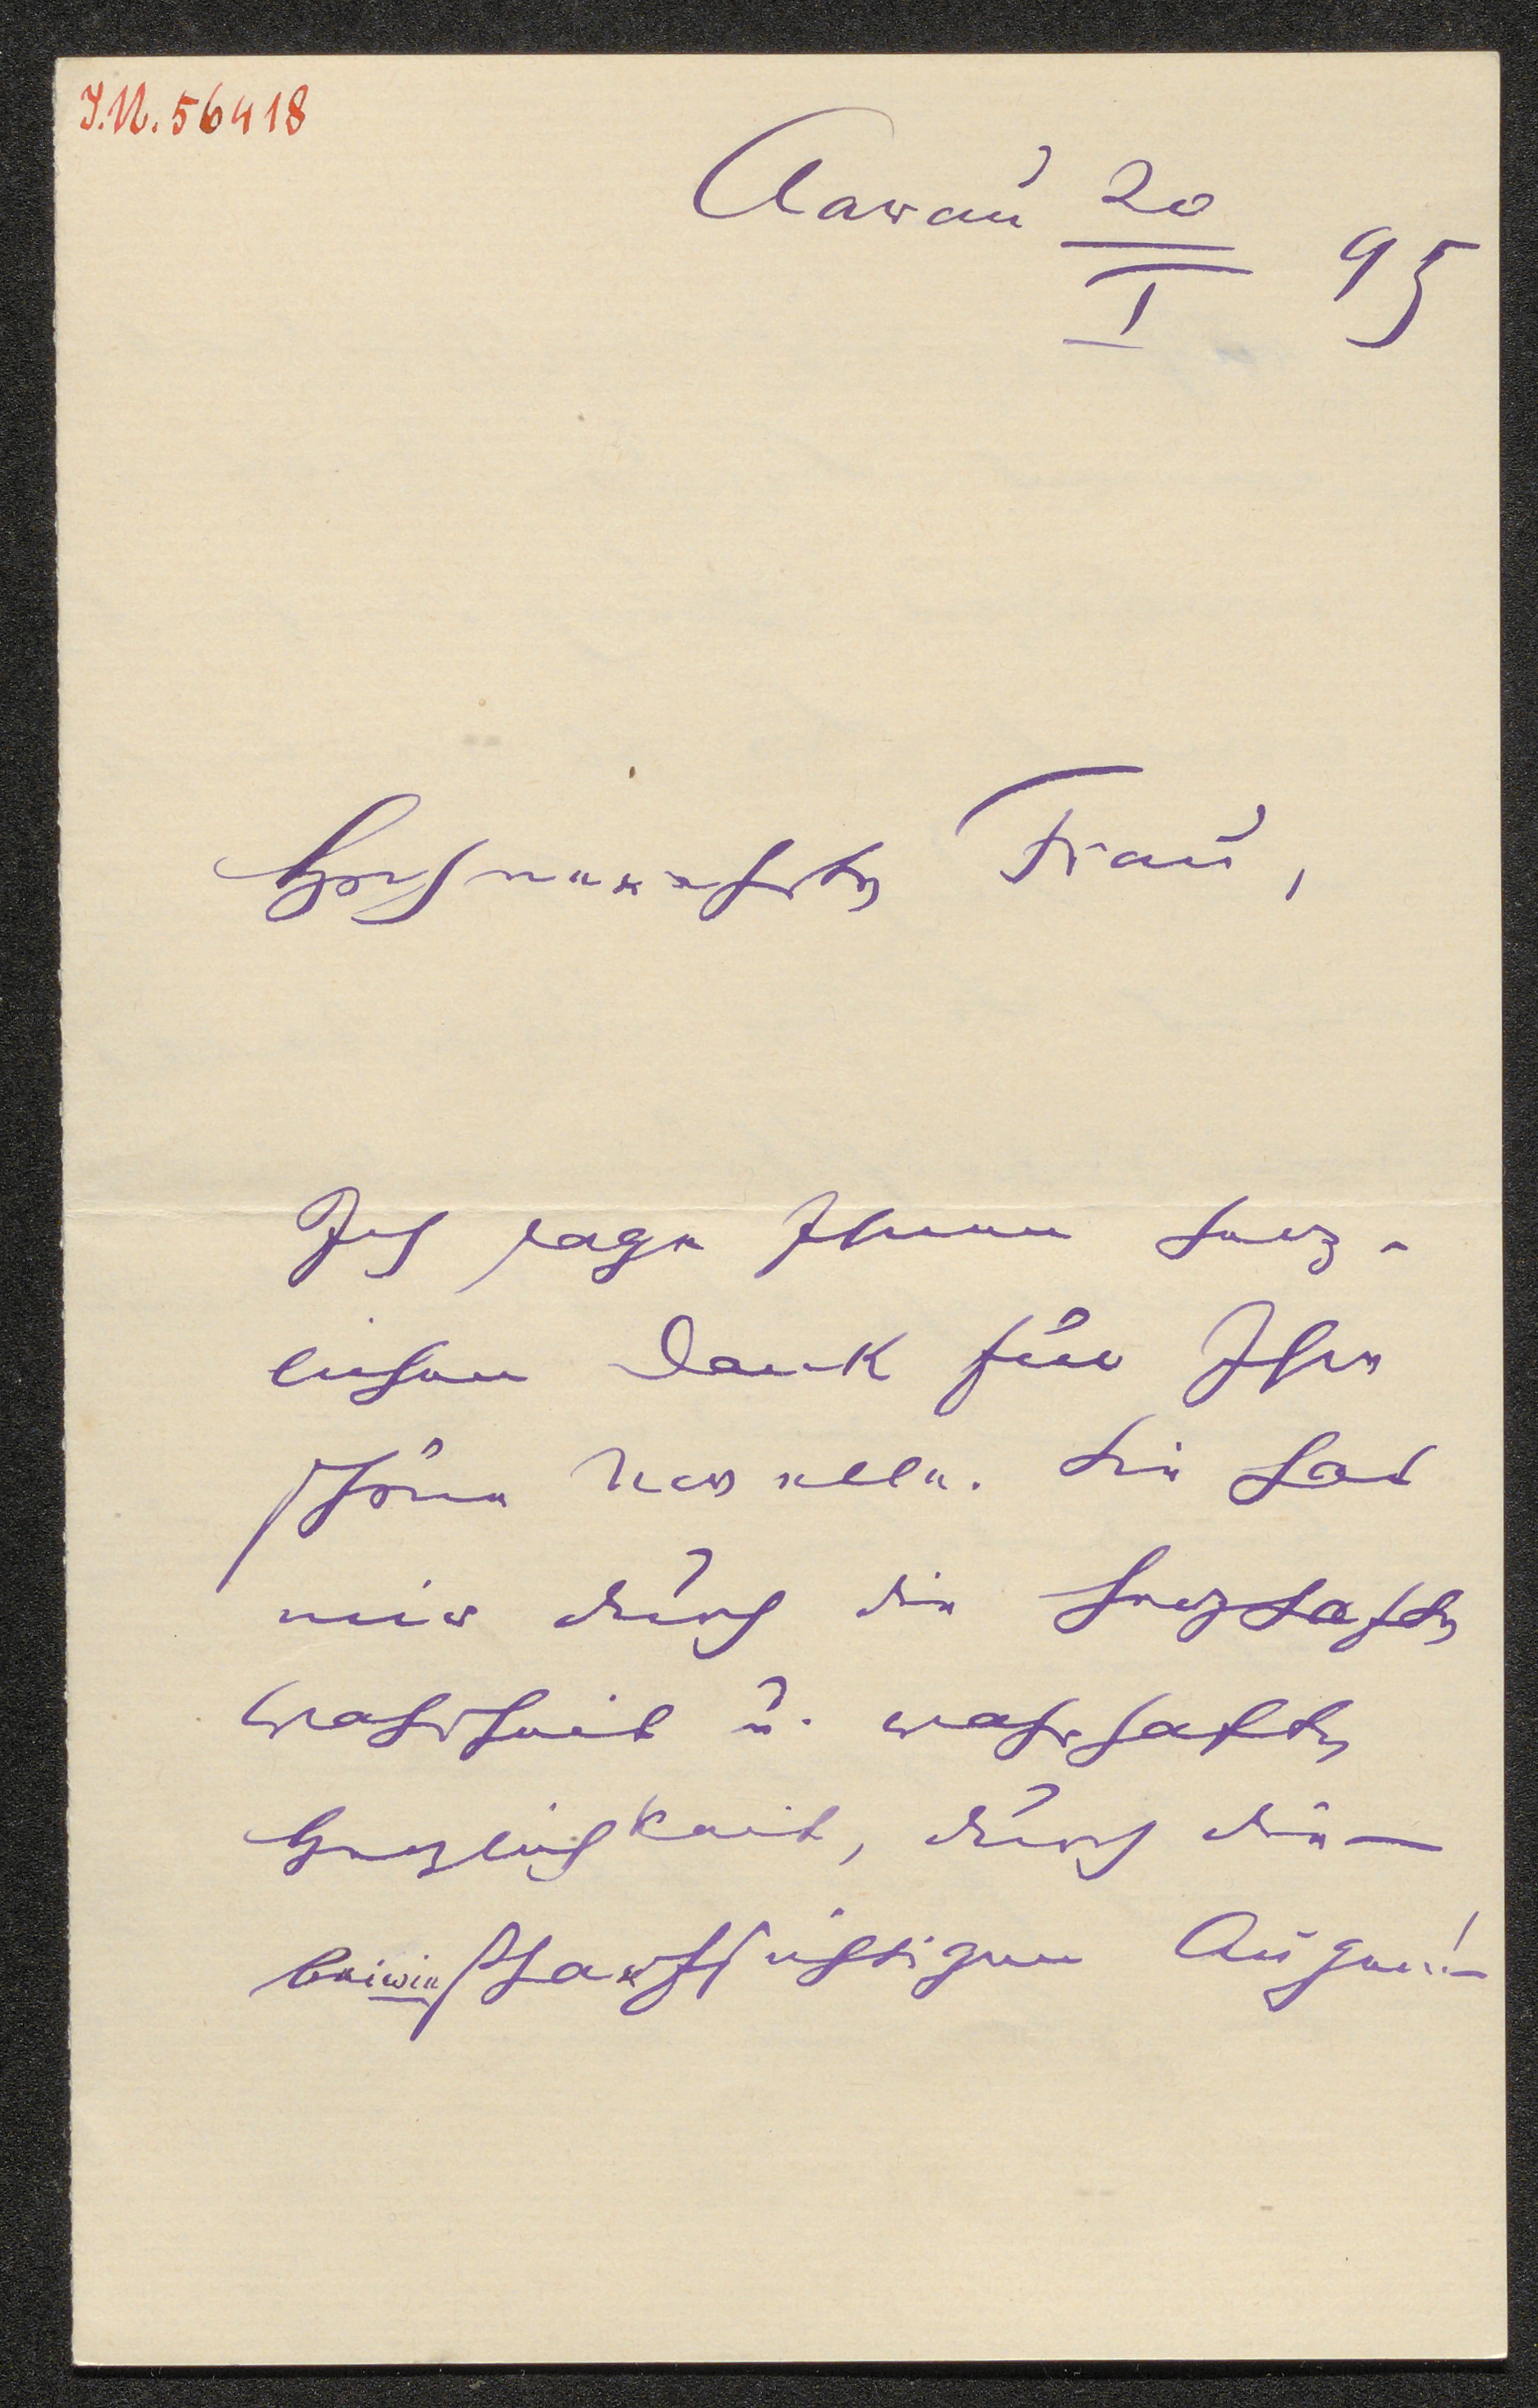 I.N. 56418
Aarau 20
I 95
Hochverehrte Frau,
Ich sage Ihnen herz-
lichen Dank für Ihre
schöne Novelle. Sie hat
mir durch die herzhafte
Wahrheit u. wahrhafte
Herzlichkeit, durch die —
bei wie scharfsichtigen Augen! —